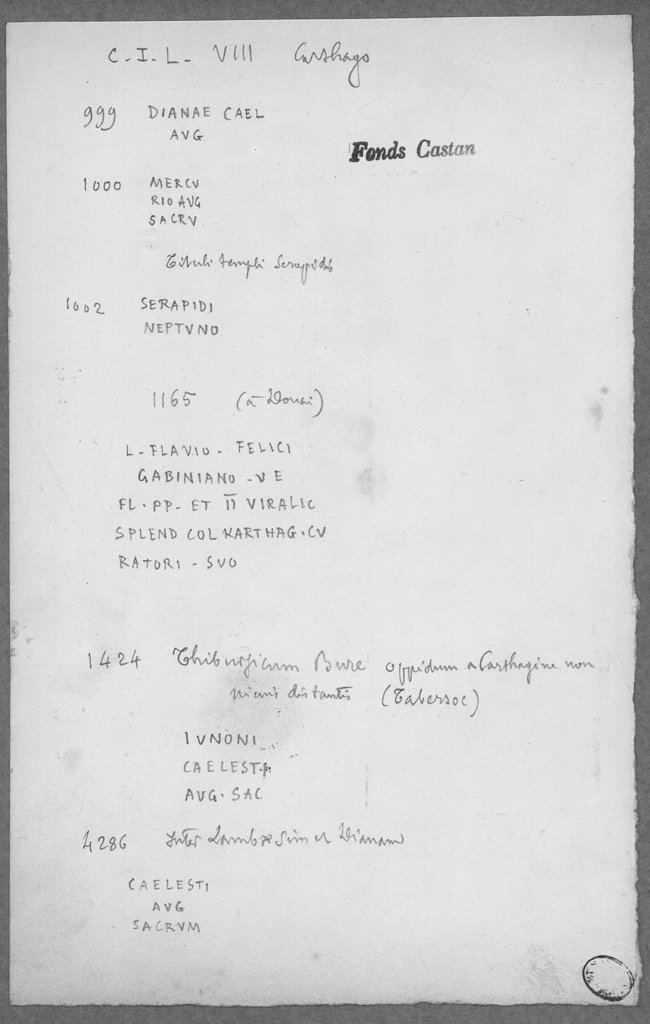 C. I. L. VIII Carthago
999 DIANAE CAEL
AVG
Fonds Castan
1000 MERCV
RIO AVG
SACRV
Tituli templi Serapidis
1002 SERAPIDI
NEPTVNO
1165 (à Douai)
L. FLAVIO. FELICI
GABINIANO. V E
FL. PP. ET II VIRALIC
SPLEND COL KARTHAG. CV
RATORI. SVO
1424 Thibursicum Bure oppidum a Carthagine non
distantis (Tabersoc)
IVNONI
CAELESTI
AVG. SAC
4286 Inter Lambaesim et Dianam
CAELESTI
AVG
SACRVM